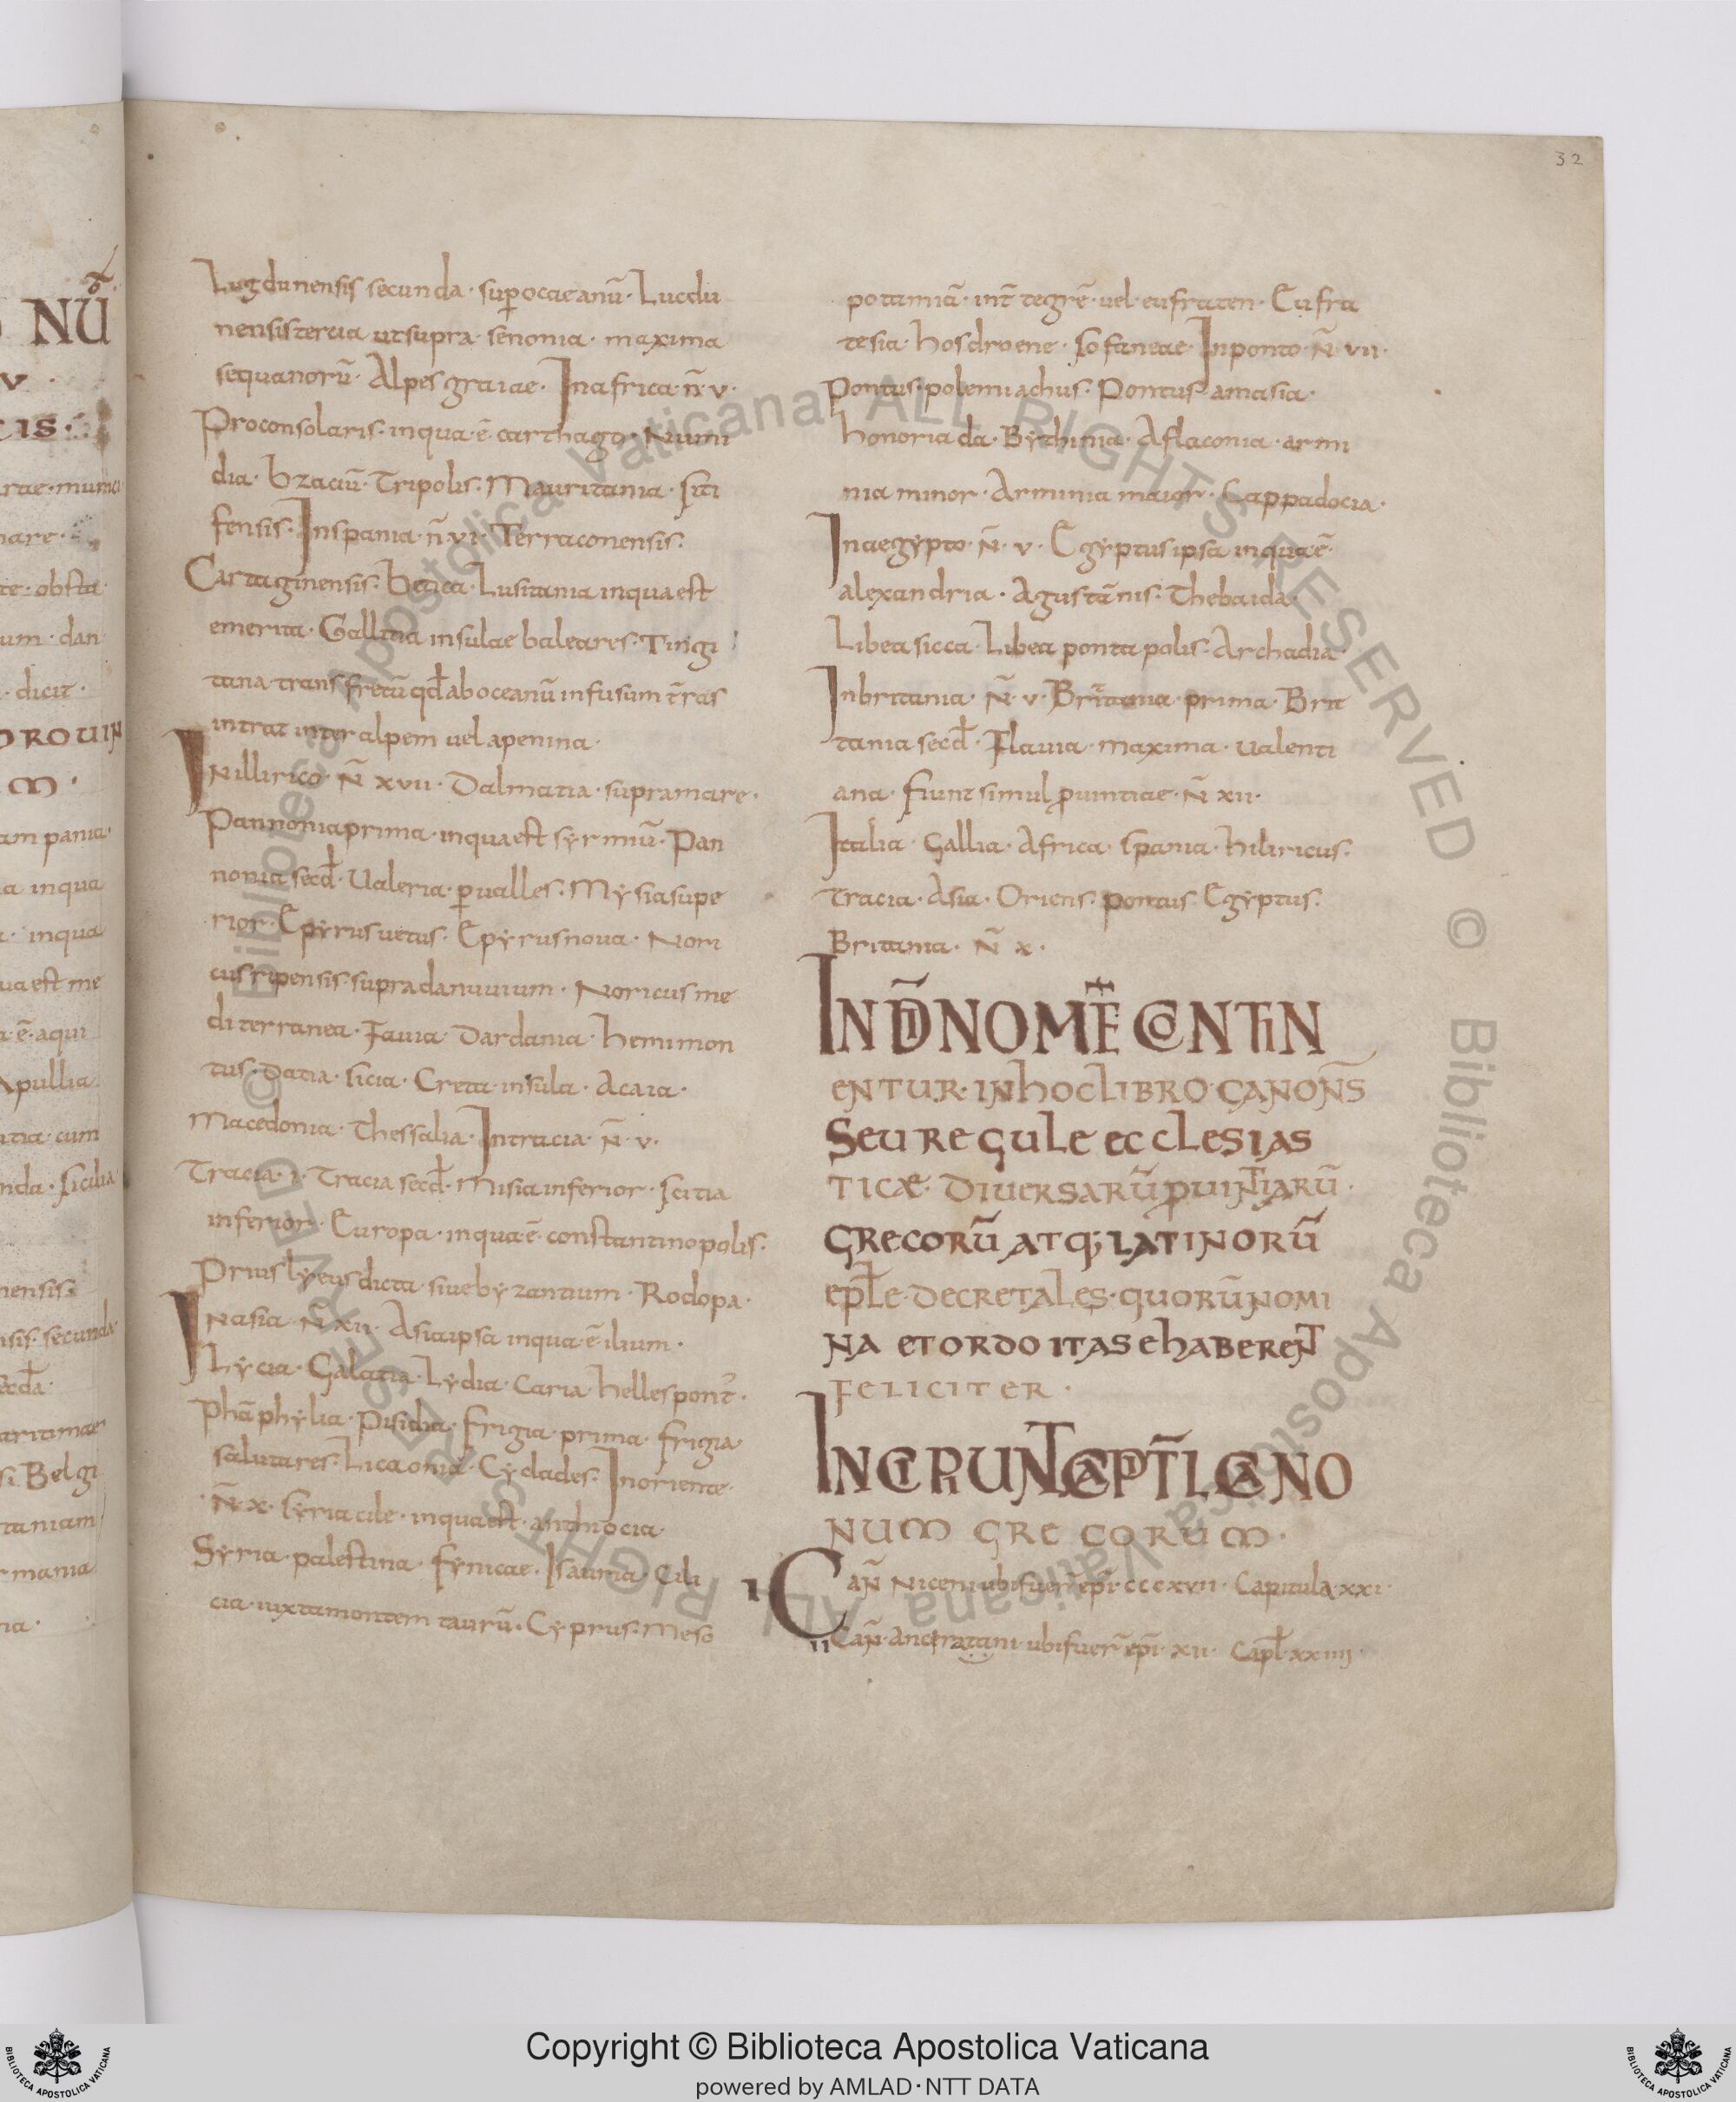 32
Lugdunensis secunda · sup ocaeanū · Lucdu
nensis tercia ut supra · senonia · maxima
sequanorū · Alpes graiae · In africa · n̄ · v ·
Proconsolaris · in qua · ē · carthago · Numi
dia · bzaciū · Tripolis · Mauritania · siti
fensis · In spania · n̄ · vi · Terraconensis ·
Cartaginensis · betica · Lusitania in qua est
emerita · Gallitia insulae baleares · Tingi
tana trans fretū qd̄ ab oceanū infusum t̄ras
intrat inter alpem uel apenina ·
In illirico · N̄ xvii · Dalmatia · supra mare ·
Pannonia prima · in qua est syrmiū · Pan
nonia secd̄ · Ualeria · p ualles · Mysia supe
rior · Epyrus uetus · Epyrus noua · Nori
cus ripensis · supra danuuium · Noricus me
diterranea · Fauia · Dardania · hemimon
tus · Datia · sicia · Creta · insula · Acaia ·
Macedonia · Thessalia · In tracia · N̄ · v ·
Tracia · i · Tracia secd̄ · Misia inferior · scitia
inferior · Europa · in qua · ē · constantinopolis ·
Prius lyeus dicta · siue byzantium · Rodopa ·
In asia · N̄ xii · Asia ipsa in qua · ē ilium ·
Lycia · Galatia · Lydia · Caria · hellespont ·
Phāphylia · Pisidia · frigia · prima · frigia ·
salutares · Licaonia · Cyclades · In oriente ·
N̄ · x · syria cile · in qua est · anthiocia ·
Syria · palestina · fynicae · Isauria · Cili
cia · iuxta montem taurū · Cyprus · Meso
potamiā · int̄ tegrē · uel · eufraten · Eufra
tesia · hosdroene · sofaneae · In ponto · N̄ · vii ·
Pontus · polemiachus · Pontus amasia ·
honoriada · Bythinia · Aflaconia · armi
nia minor · Arminia maior · Cappadocia ·
In aegypto · N̄ · v · Egyptus ipsa in qua ē ·
alexandria · Agustānis · Thebaida ·
Libea sicca · Libea pontapolis · Archadia ·
In britania · N̄ · v · Britania · prima · Bri
tania secd̄ · Flauia · maxima · ualenti
ana · fiunt simul puintiae · N̄ xii ·
Italia · Gallia · Africa · spania · hiliricus ·
Tracia · Asia · Oriens · pontus · Egyptus ·
Britania · N̄ x ·
IN DĪ NOMĒ CONTIN
ENTUR · IN hOC LIBRO · CANON̄S
SEU REGULE ECCLESIAS
TICÆ · DIUERSARŪ PUINTIARŪ ·
GRECORŪ ATQ; LATINORŪ
EPL̄E · DECRETALES · QUORŪ NOMI
NA ET ORDO ITA SE hABERENT
FELICITER ·
INCIPIUNT CAPIT̄L CANO
NUM GRECORUM ·
I CAN̄ Niceni ubi fuer̄ ep̄i · cccxvii · Capitula · xxi ·
II Can̄ · ancyratani · ubi fuer̄ ep̄i · xii · Capl̄ · xxiiii ·
© Biblioteca Apostolica Vaticana ALL RIGHTS RESERVED
Copyright © Biblioteca Apostolica Vaticana
powered by AMLAD·NTT DATA
BIBLIOTECA APOSTOLICA VATICANA
BIBLIOTECA APOSTOLICA VATICANA